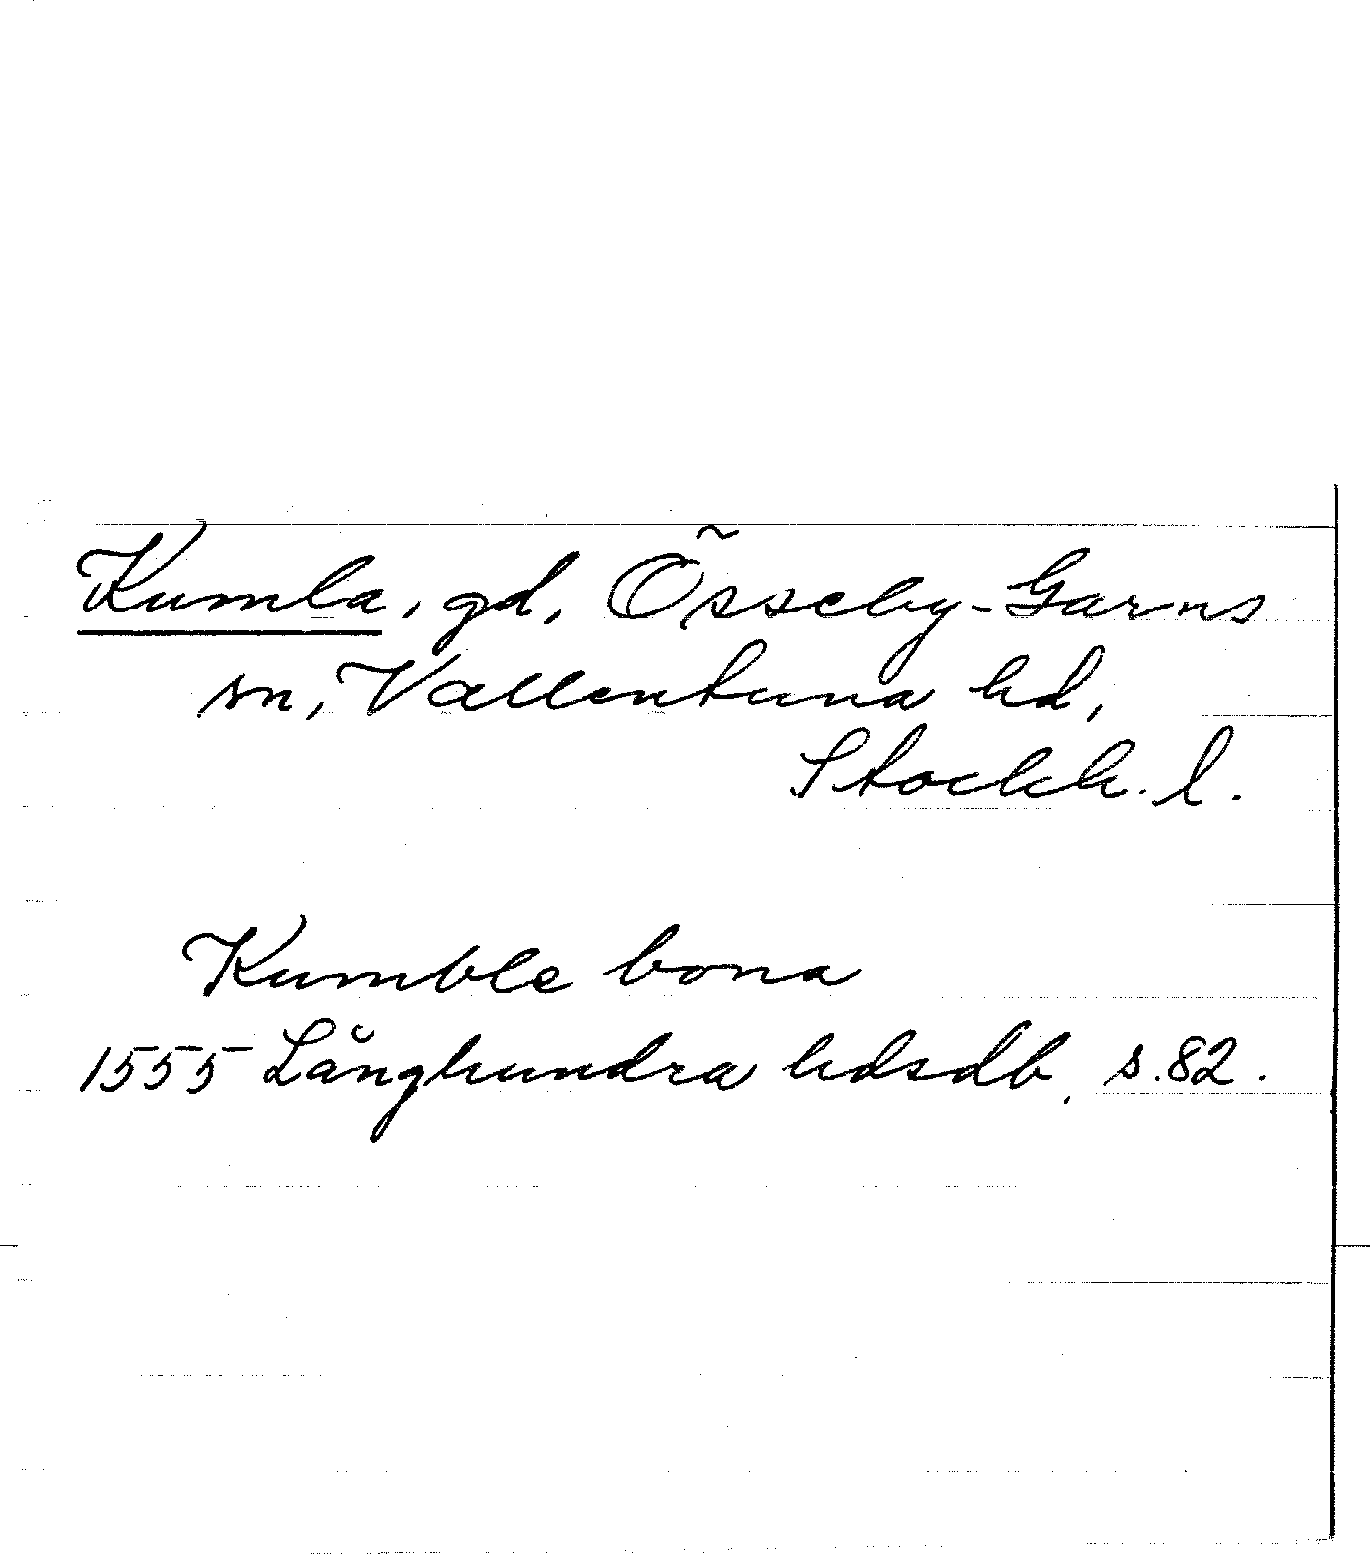 Kumla, gd, Össeby-Garns
sn, Vallentuna hd,
Stockh. l.
Kumble bona
1555 Långhundra hdsdb, s. 82.